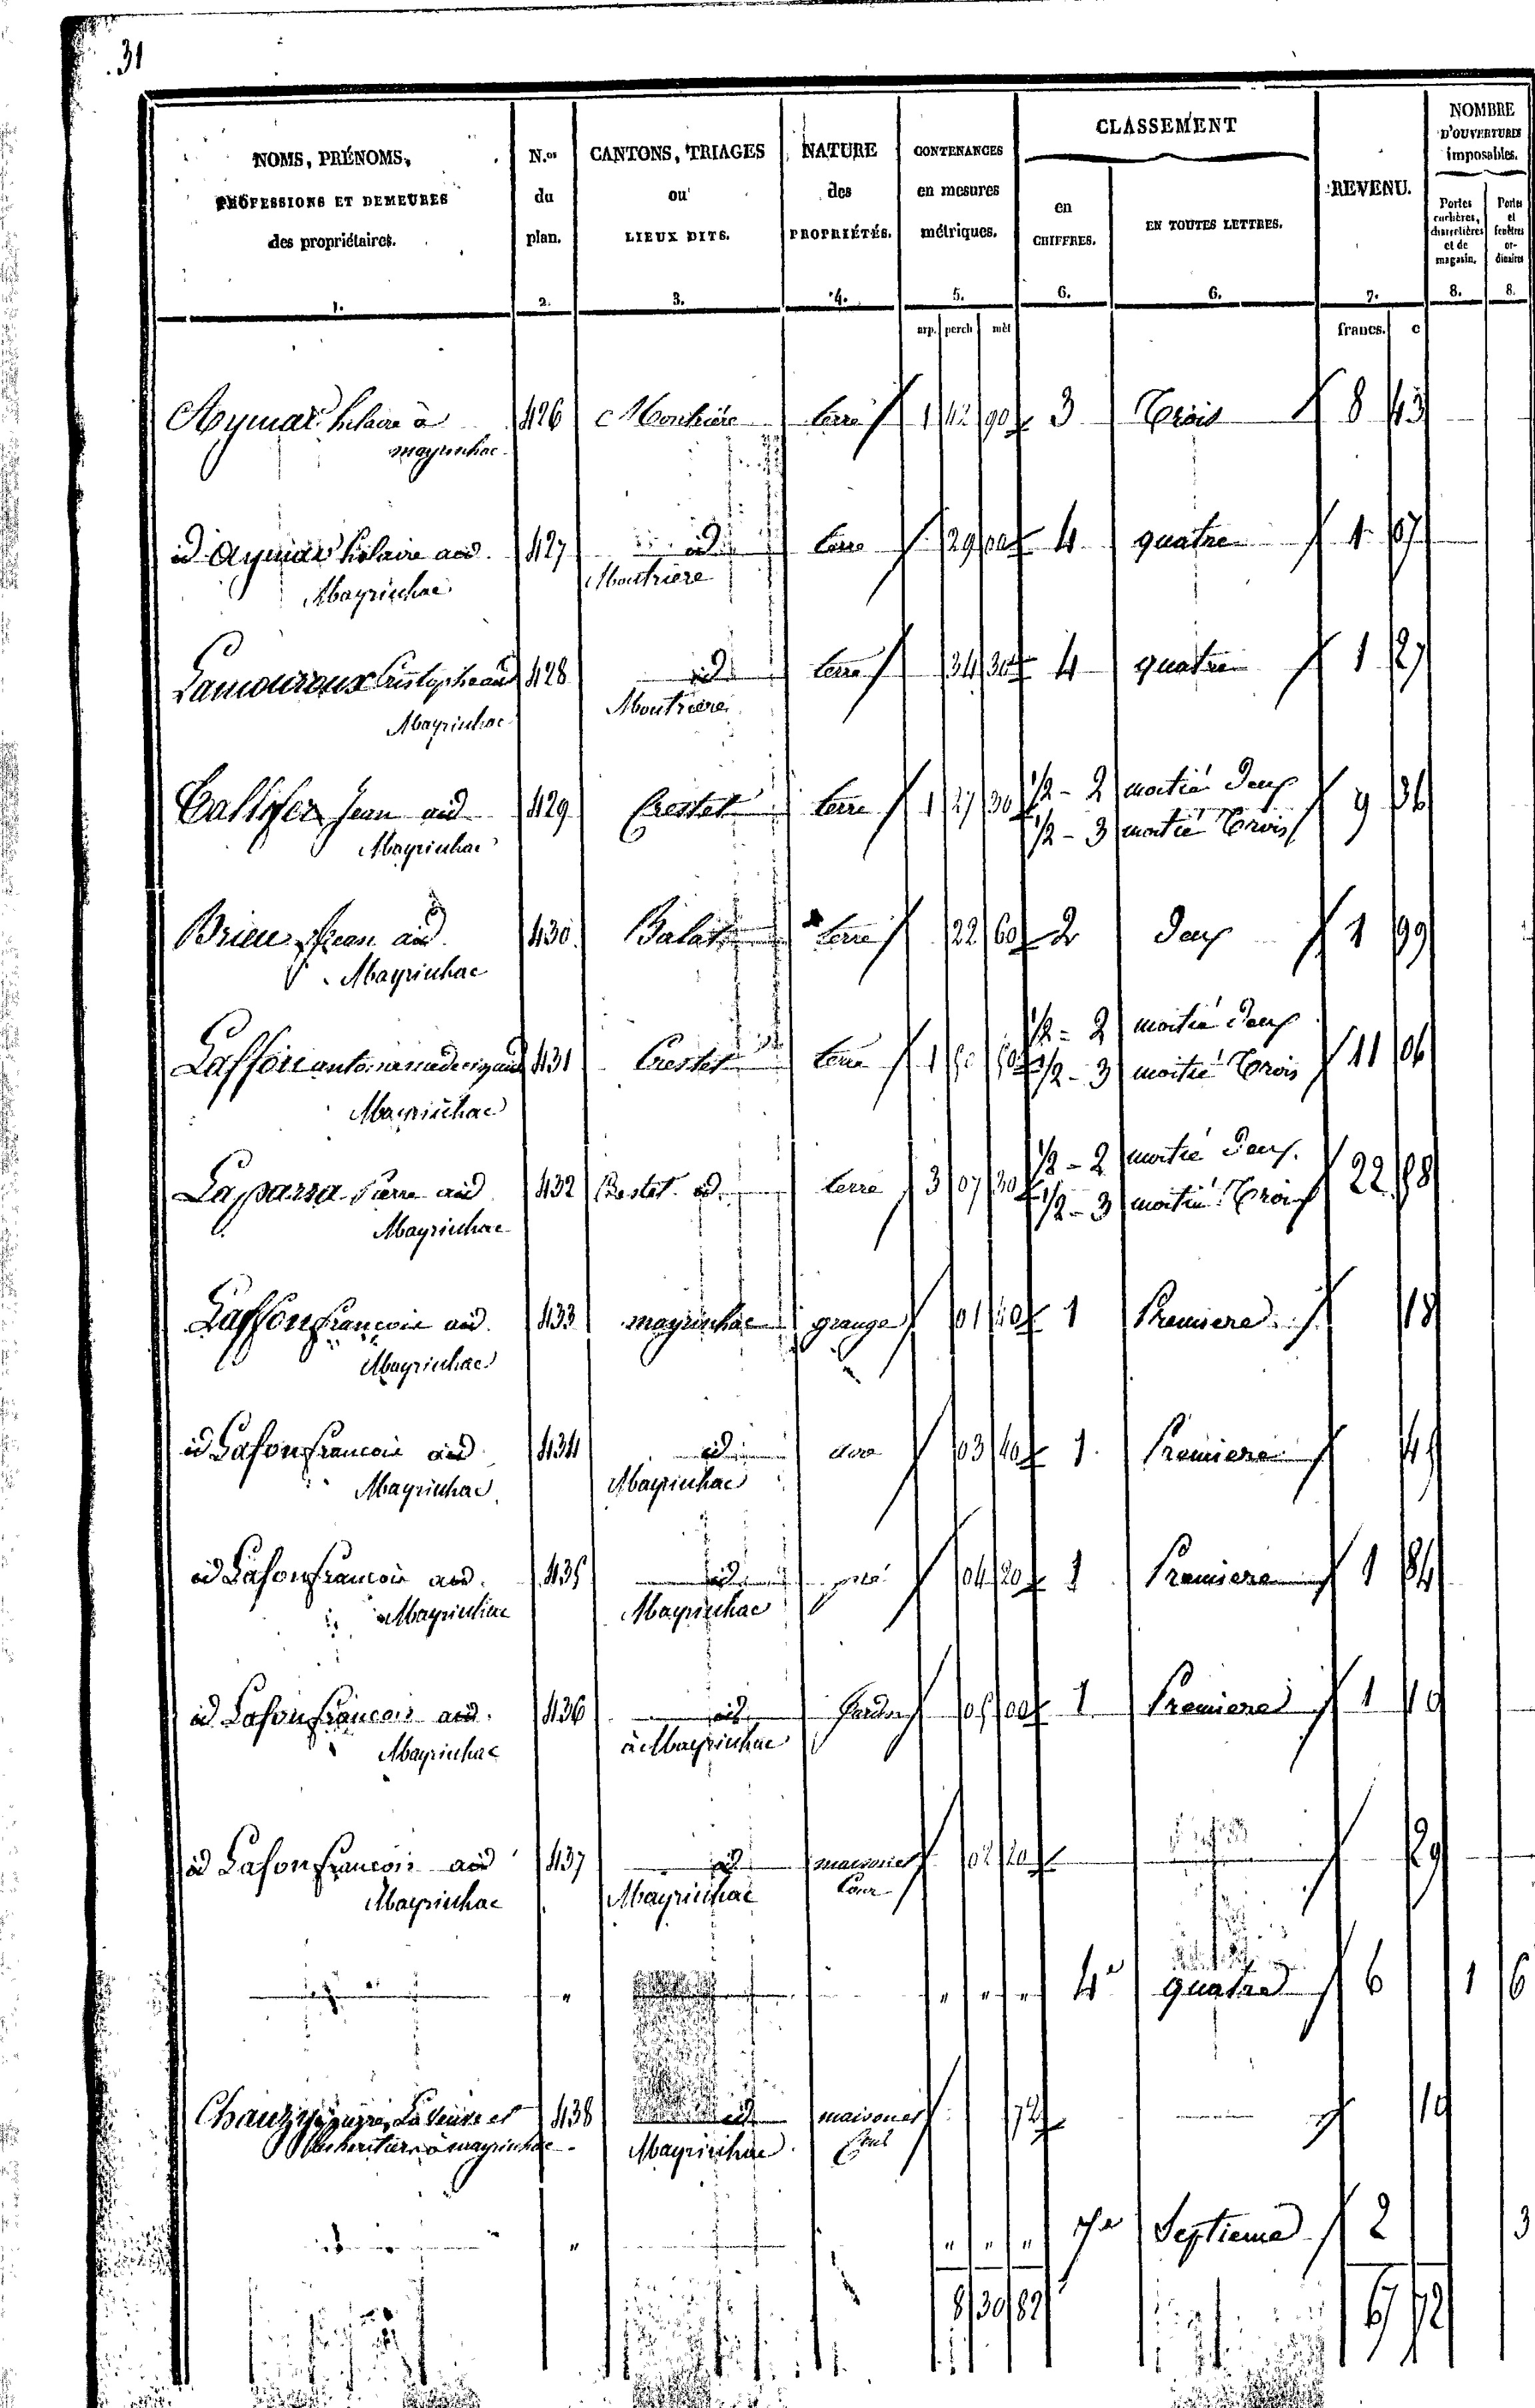 31
NOMS, PRÉNOMS, PROFESSIONS ET DEMEURES des propriétaires. 1.
N.os du plan. 2.
CANTONS, TRIAGES ou LIEUX DITS. 3.
NATURE des PROPRIÉTÉS. 4.
CONTENANCES en mesures métriques. 5.
CLASSEMENT
en CHIFFRES. 6.
EN TOUTES LETTRES. 6.
REVENU. 7.
NOMBRE D'OUVERTURES imposables.
Portes cochères, charretières et de magasin. 8.
Portes et fenêtres ordinaires 8.
arp. perch mèt francs. c
Aymar hilaire à 426 Montriere terre 1 42 90 3 Trois 8 43
mayrinhac
id Aymar hilaire aud. 427 id terre 29 00 4 quatre 1 07
Mayrinhac Montriere
Lamouroux Cristophe aud 428 id terre 34 30 4 quatre 1 27
Mayrinhac Montriere
Jean aud 429 Crestet terre 1 27 30 1/2 - 2 moitié Deux 9 36
Mayrinhac 1/2 - 3 moitié Trois
Brieu Jean aud. 430 Balat terre 22 60 2 Deux 1 99
Mayrinhac
Laffon 431 Crestet terre 1 1/2 - 2 moitié Deux 11 06
Mayrinhac 1/2 - 3 moitié Trois
Laparra Pierre aud 432 Crestet id. terre 3 07 30 1/2 - 2 moitié Deux 22
Mayrinhac 1/2 - 3 moitié Trois
Laffon francois aud. 433 mayrinhac grange 01 40 1 Premiere 18
Mayrinhac
id Lafon francois aud 434 id 03 40 1. Premiere 45
Mayrinhac Mayrinhac
id Lafon francois aud. 435 id pré 04 20 1 Premiere 1 84
Mayrinhac Mayrinhac
id Lafon francois aud. 436 id Jardin 05 00 1 Premiere 1 10
Mayrinhac à Mayrinhac
id Lafon francois aud 437 id maison et 02 20 29
Mayrinhac Mayrinhac Cour
" " " " 4e quatre 6 1 6
Chauzy pierre, La Veuve et 438 id maison et 72 10
les heritiers à mayrinhac Mayrinhac
" " " " 7e Septieme 2 3
8 30 82 67 72